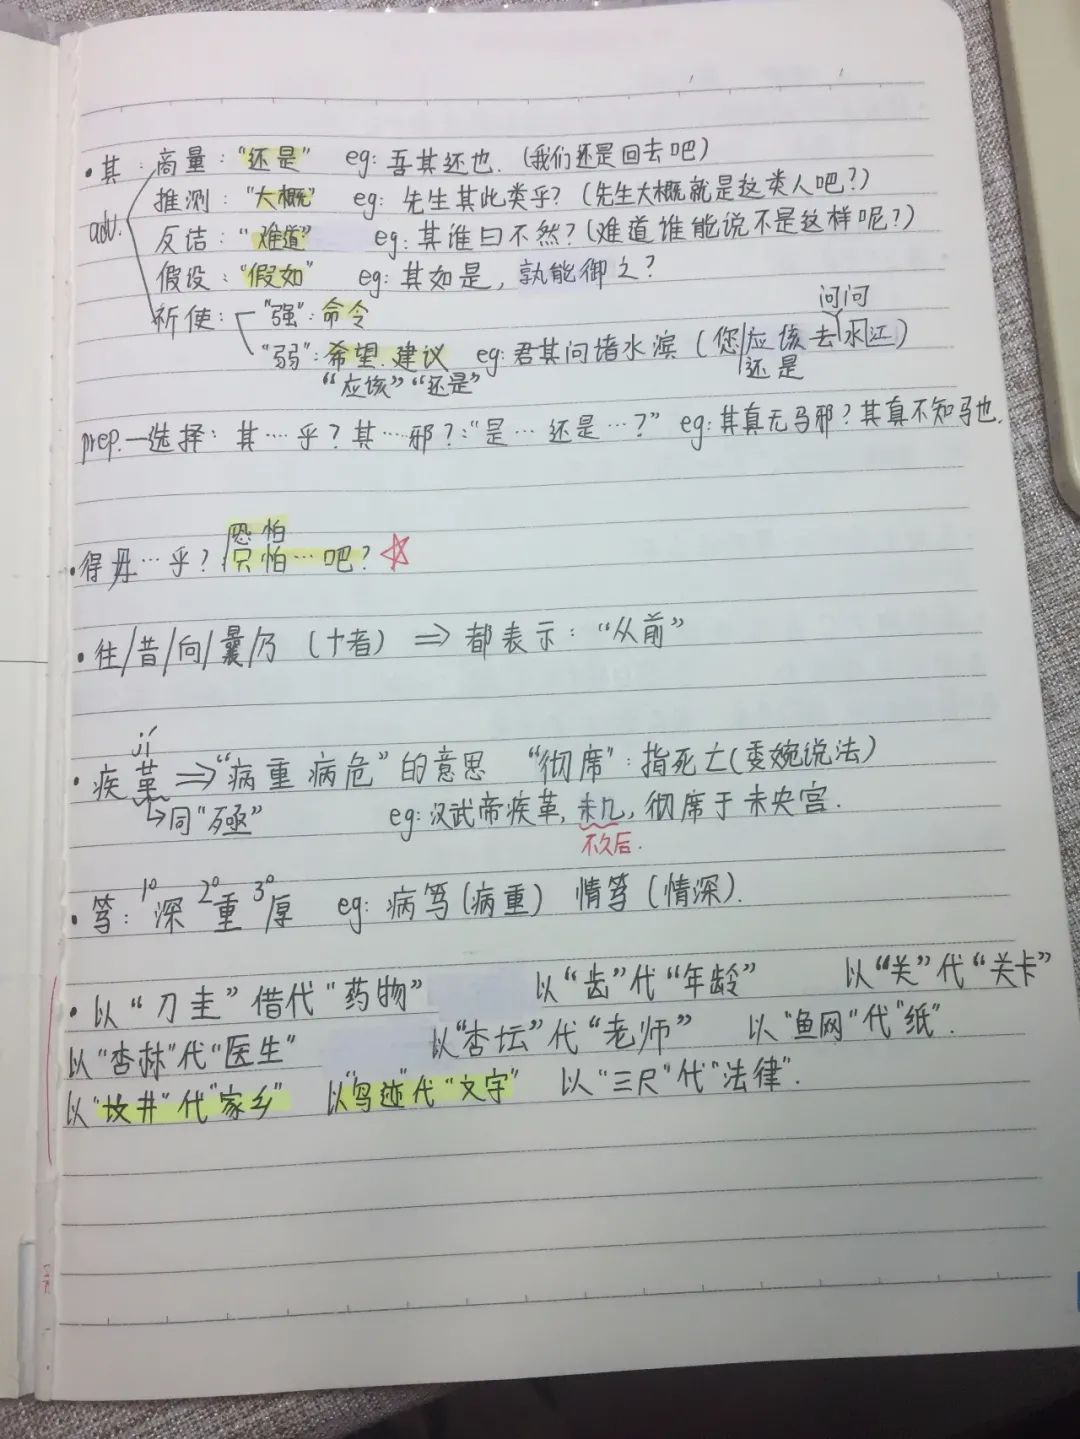 •其：商量：“还是” eg：吾其还也.（我们还是回去吧）
adv. 推测：“大概” eg：先生其此类乎？（先生大概就是这类人吧？）
反诘：“难道” eg：其谁曰不然？（难道谁能说不是这样呢？）
假设：“假如” eg：其如是，孰能御之？
祈使： “强”：命令
问问
“弱”：希望.建议 eg：君其问诸水滨（您应该去水江）
“应该”“还是” 还是
prep.一选择：其…乎？其…邪？：“是…还是…？” eg：其真无马邪？其真不知马也.
恐怕
•得毋…乎？只怕…吧？☆
•往/昔/向/曩/乃（十者）⇒都表示：“从前”
jí
•疾革⇒“病重 病危”的意思 “彻席”：指死亡（委婉说法）
↳同“殛” eg：汉武帝疾革，未几，彻席于未央宫.
不久后.
•笃：1°深 2°重 3°厚 eg：病笃（病重） 情笃（情深）.
•以“刀圭”借代“药物” 以“齿”代“年龄” 以“关”代“关卡”
以“杏林”代“医生” 以“杏坛”代“老师” 以“鱼网”代“纸”.
以“坟井”代“家乡” 以“鸟迹”代“文字” 以“三尺”代“法律”.